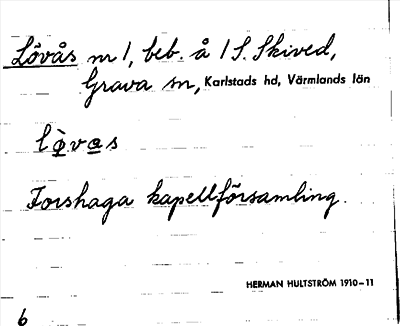 Lövås nr 1, beb. å 1 S. Skived,
Grava sn, Karlstads hd, Värmlands län
lø̀vas
Forshaga kapellförsamling.
HERMAN HULTSTRÖM 1910-11
6